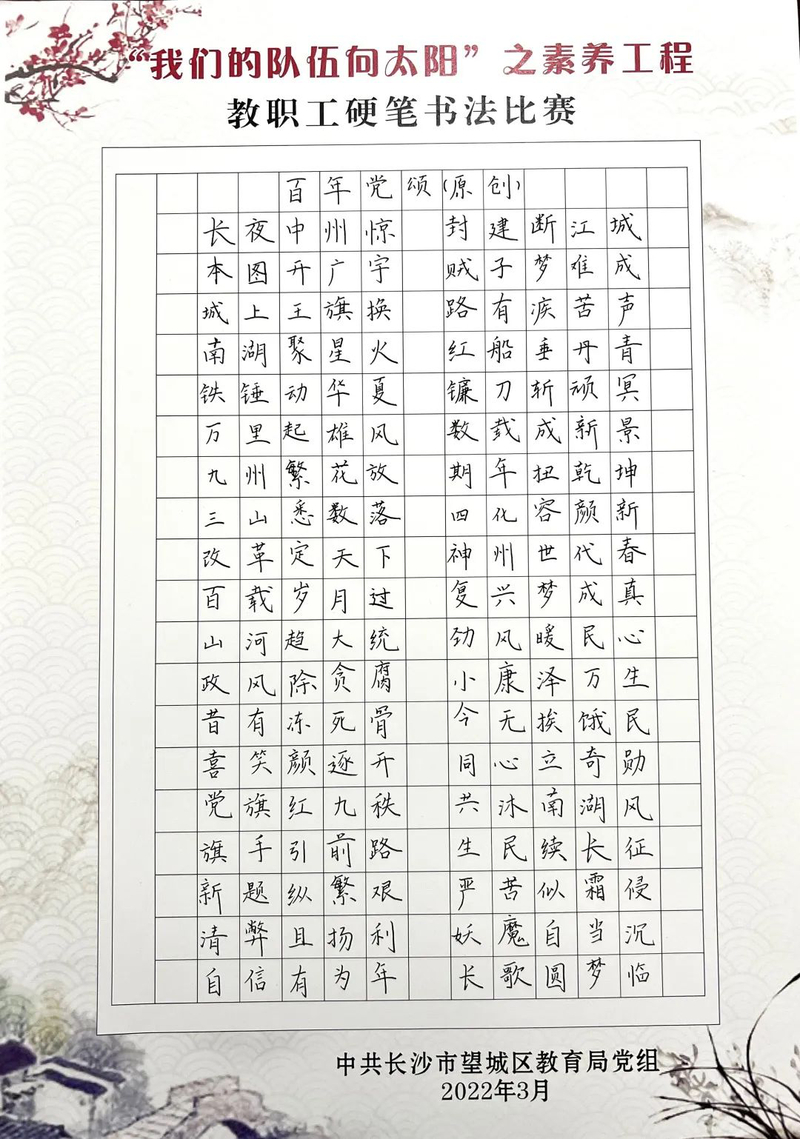 “我们的队伍向太阳”之素养工程
教职工硬笔书法比赛
百年党颂(原创)
长夜中州惊 封建断江城
本图开广宇 贼子梦难成
城上王旗换 路有疾苦声
南湖聚星火 红船垂丹青
铁锤动华夏 镰刀斩顽冥
万里起雄风 数载成新景
九州繁花放 期年扭乾坤
三山悉数落 四化容颜新
改革定天下 神州世代春
百载岁月过 复兴梦成真
山河趋大统 劲风暖民心
政风除贪腐 小康泽万生
昔有冻死骨 今无挨饿民
喜笑颜逐开 同心立奇勋
党旗红九秩 共沐南湖风
旗手引前路 生民续长征
新题纵繁艰 严苦似霜侵
清弊且扬利 妖魔自当沉
自信有为年 长歌圆梦临
中共长沙市望城区教育局党组
2022年3月